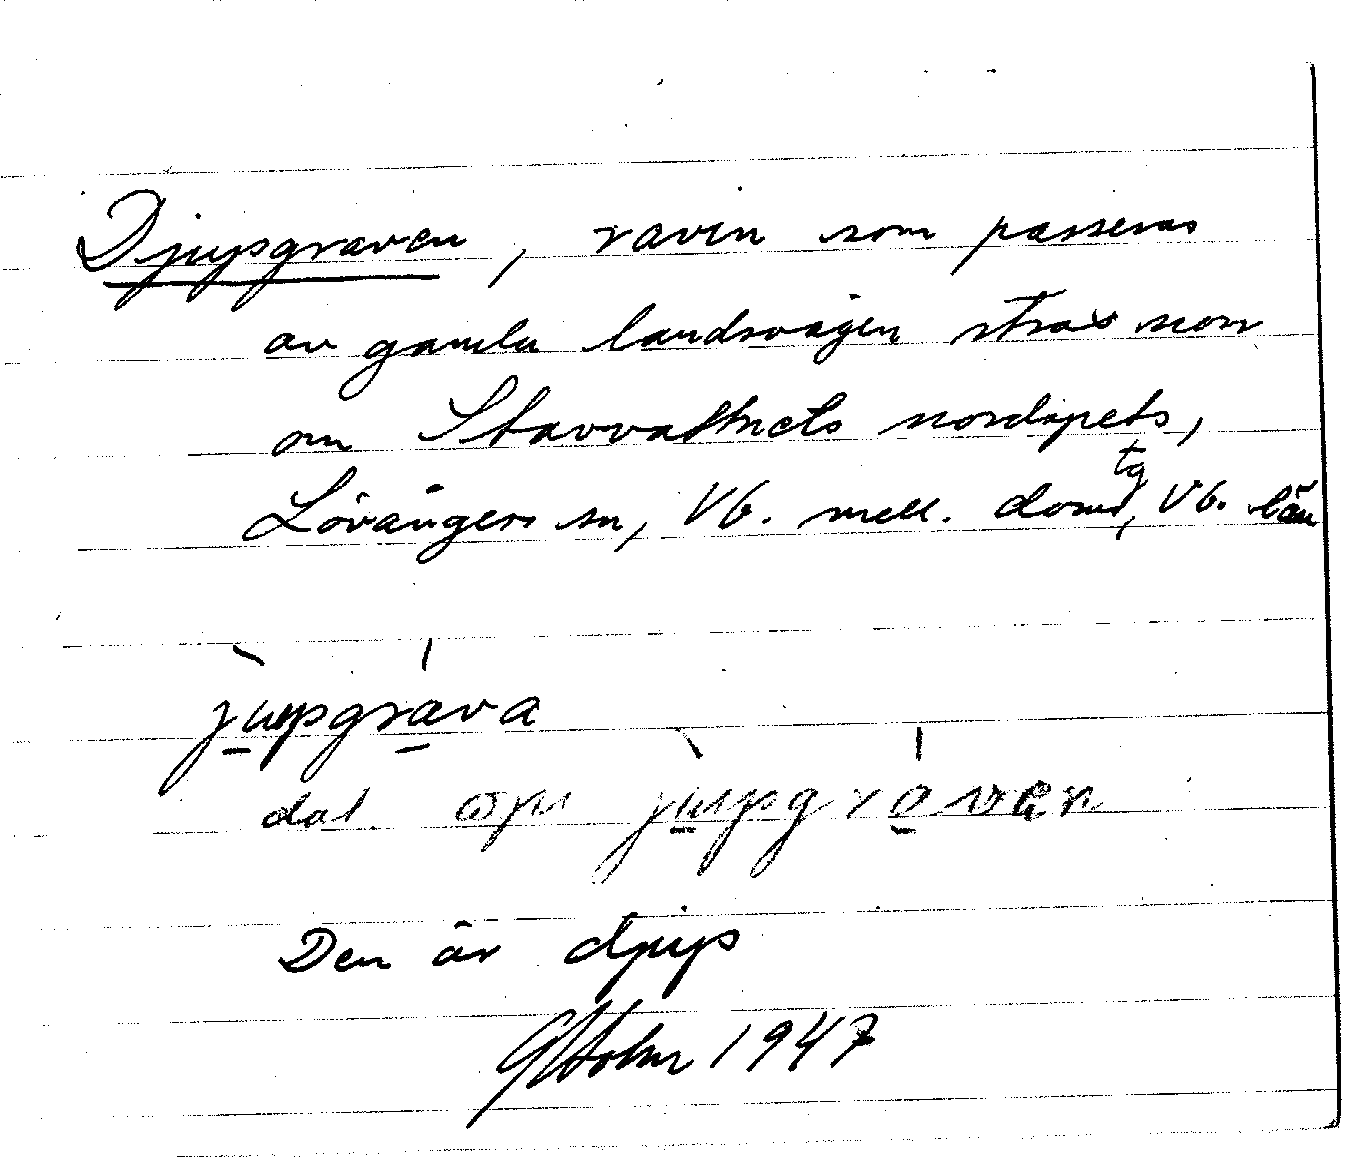 Djupgraven, ravin som passeras
av gamla landsvägen strax norr
om Stavvattnets nordspets,
Lövångers sn, Vb. mell. domstg, Vb. län
jùpgráva
dat. jùpgráven
Den är djup
Holm 1947